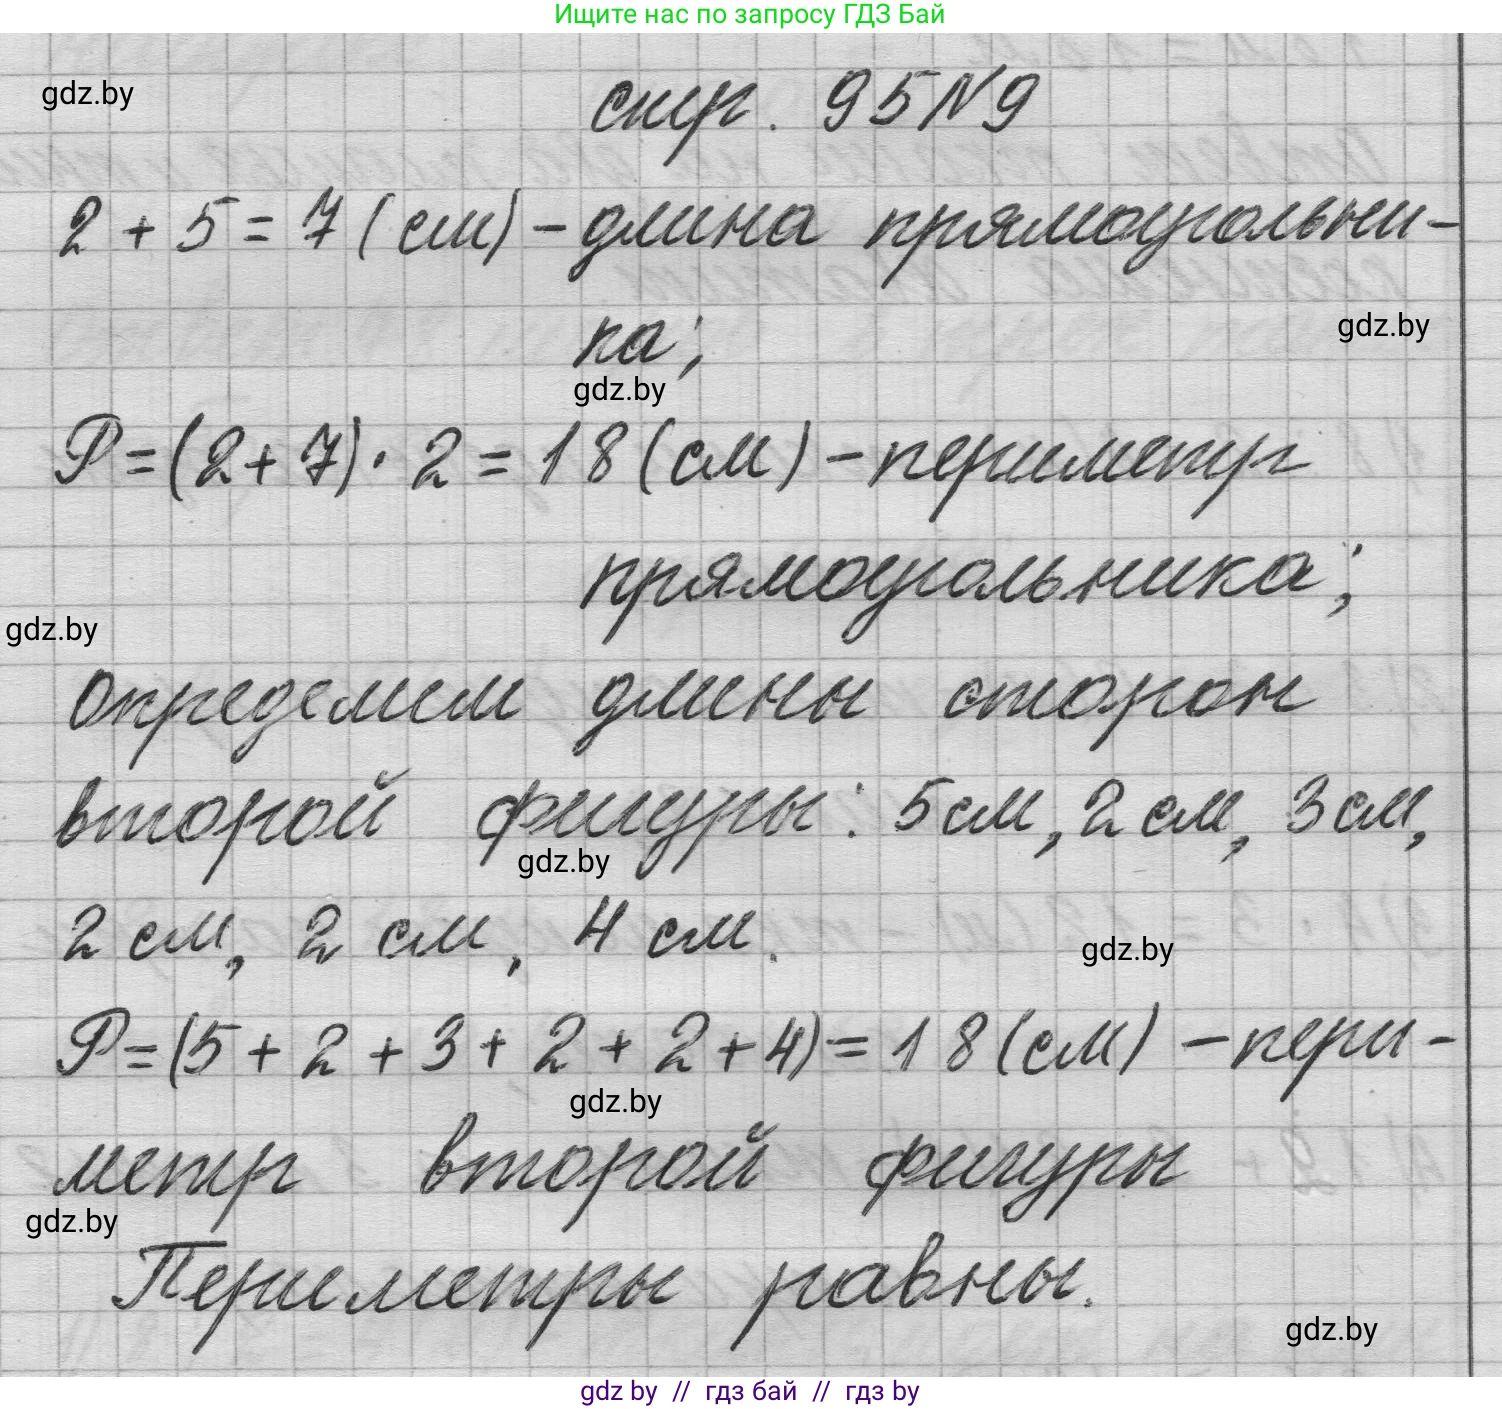 Ищите нас по запросу ГДЗ Бай
gdz.by
стр. 95 №9
2 + 5 = 7 (см) - длина прямоугольни-
ка;
gdz.by
gdz.by
P = (2 + 7) · 2 = 18 (см) - периметр
прямоугольника;
gdz.by
Определим длины сторон
второй фигуры: 5 см, 2 см, 3 см,
gdz.by
2 см, 2 см, 4 см.
gdz.by
P = (5 + 2 + 3 + 2 + 2 + 4) = 18 (см) - пери-
gdz.by
метр второй фигуры
gdz.by
Периметры равны.
gdz.by
gdz by // гдз бай // гдз by